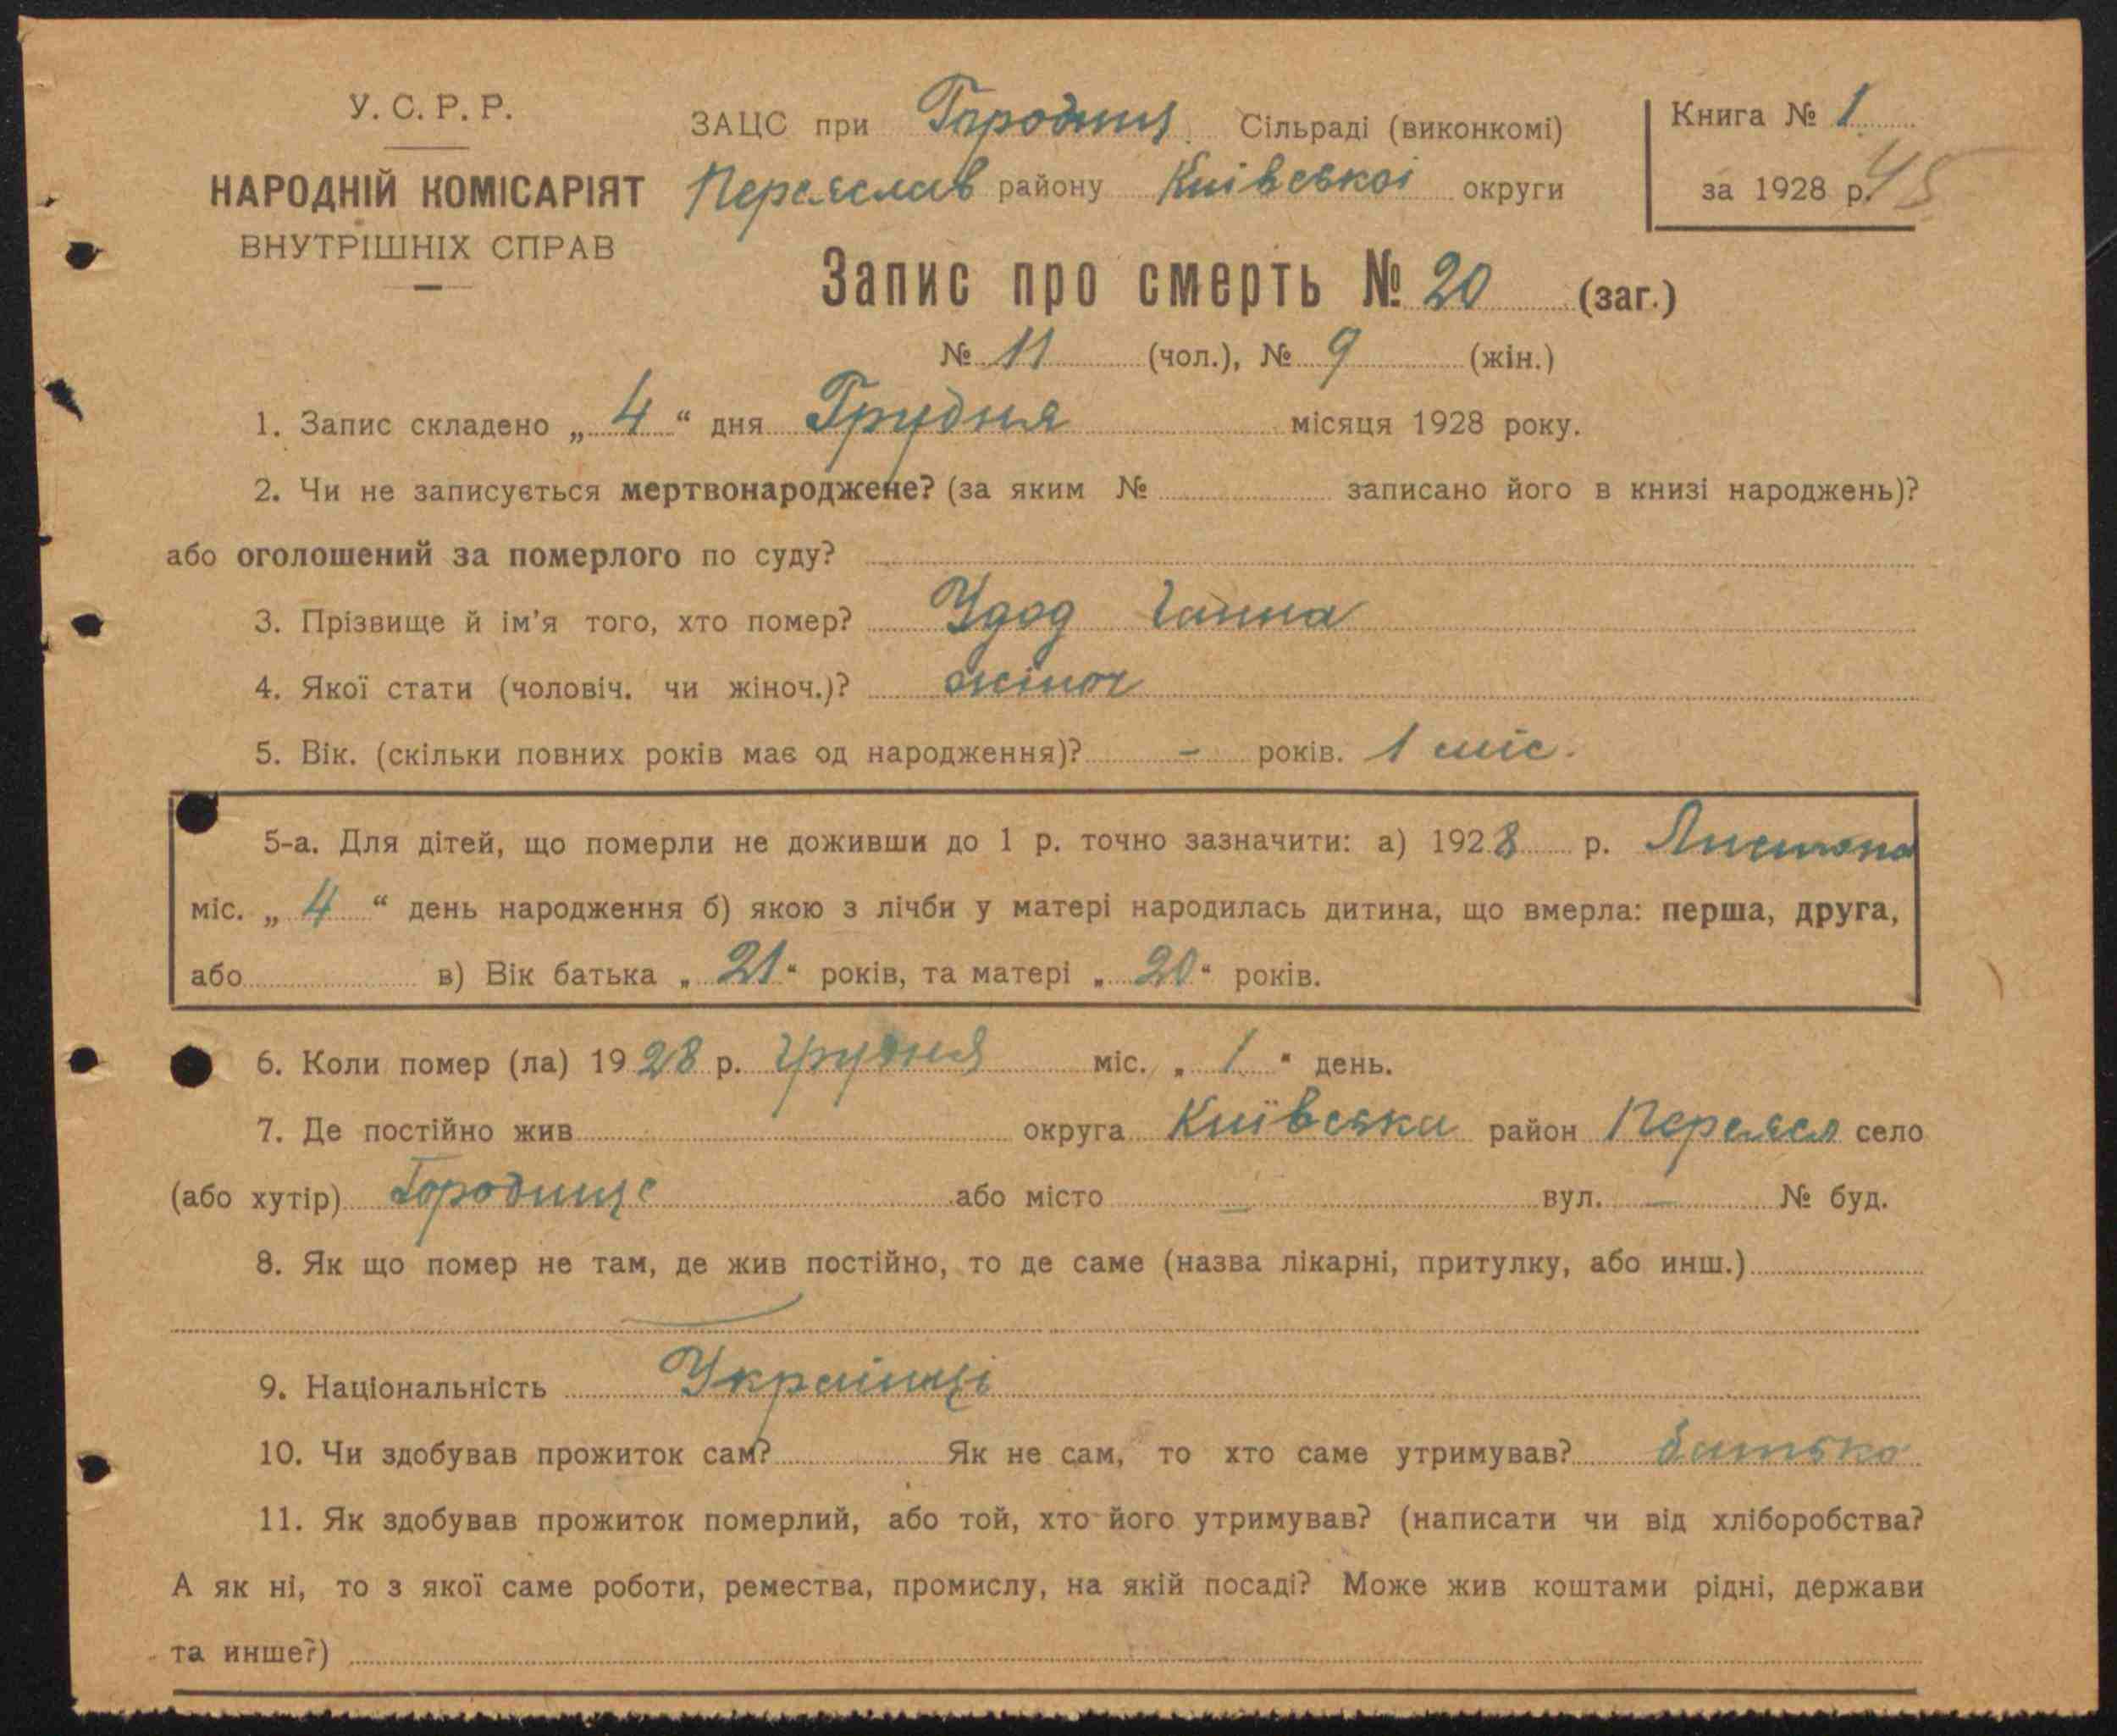 У. С. Р. Р.
НАРОДНІЙ КОМІСАРІЯТ
ВНУТРІШНІХ СПРАВ
ЗАЦС при Городищ. Сільраді (виконкомі)
Переяслав району Київської округи
Книга № 1
за 1928 р. 45
Запис про смерть № 20 (заг.)
№ 11 (чол.), № 9 (жін.)
1. Запис складено „ 4 “ дня Грудня місяця 1928 року.
2. Чи не записується мертвонароджене? (за яким № записано його в книзі народжень)?
або оголошений за померлого по суду?
3. Прізвище й ім'я того, хто помер? Удод Ганна
4. Якої стати (чоловіч. чи жіноч.)? жіноч
5. Вік. (скільки повних років має од народження)? – років. 1 міс.
5-а. Для дітей, що померли не доживши до 1 р. точно зазначити: а) 1928 р. Листопа
міс. „ 4 “ день народження б) якою з лічби у матері народилась дитина, що вмерла: перша, друга,
або в) Вік батька „ 21 “ років, та матері „ 20 “ років.
6. Коли помер (ла) 1928 р. грудня міс. „ 1 “ день.
7. Де постійно жив округа Київська район Переясл село
(або хутір) Городище або місто – вул. – № буд.
8. Як що помер не там, де жив постійно, то де саме (назва лікарні, притулку, або инш.)
9. Національність Українці
10. Чи здобував прожиток сам? Як не сам, то хто саме утримував? батько
11. Як здобував прожиток померлий, або той, хто його утримував? (написати чи від хліборобства?
А як ні, то з якої саме роботи, ремества, промислу, на якій посаді? Може жив коштами рідні, держави
та инше?)